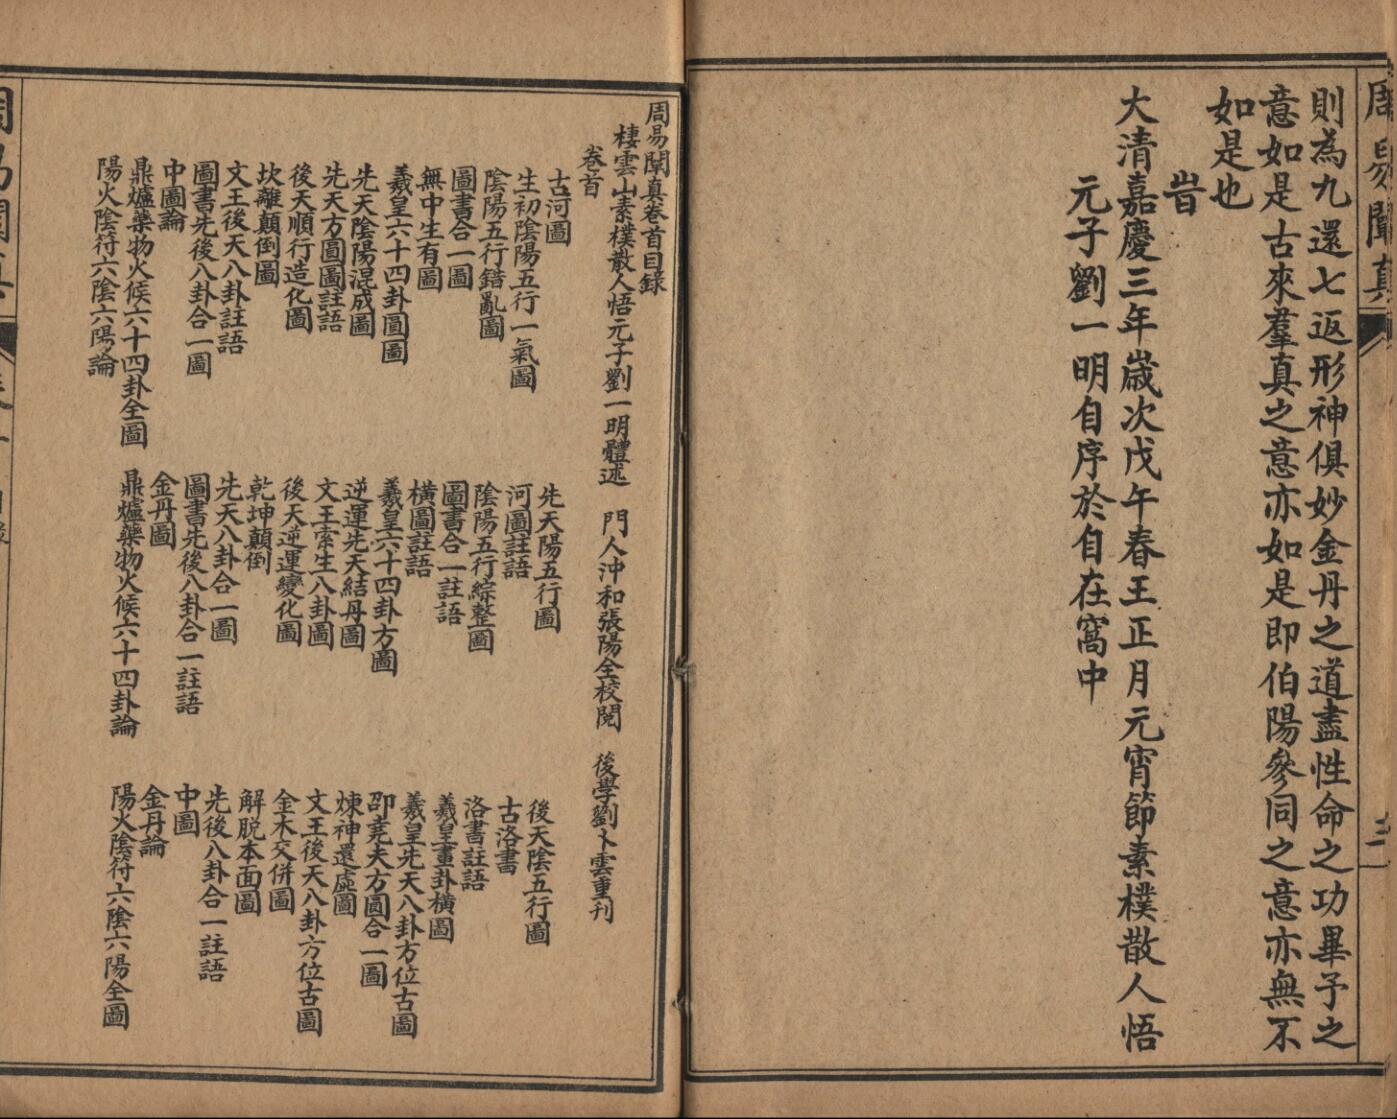 周易闡真
三
則為九還七返形神俱妙金丹之道盡性命之功畢予之
意如是古來羣真之意亦如是即伯陽參同之意亦無不
如是也
旹
大清嘉慶三年歲次戊午春王正月元宵節素樸散人悟
元子劉一明自序於自在窩中
周易闡真卷首目錄
棲雲山素樸散人悟元子劉一明體述 門人沖和張陽全校閱 後學劉卜雲重刊
卷首
古河圖 先天陽五行圖 後天陰五行圖
生初陰陽五行一氣圖 河圖註語 古洛書
陰陽五行錯亂圖 陰陽五行綜整圖 洛書註語
圖書合一圖 圖書合一註語 羲皇畫卦橫圖
無中生有圖 橫圖註語 羲皇先天八卦方位古圖
羲皇六十四卦圓圖 羲皇六十四卦方圖 邵堯夫方圓合一圖
先天陰陽混成圖 逆運先天結丹圖 煉神還虛圖
先天方圓圖註語 文王索生八卦圖 文王後天八卦方位古圖
後天順行造化圖 後天逆運變化圖 金木交併圖
坎離顛倒圖 乾坤顛倒 解脫本面圖
文王後天八卦註語 先天八卦合一圖 先後八卦合一註語
圖書先後八卦合一圖 圖書先後八卦合一註語 中圖
中圖論 金丹圖 金丹論
鼎爐藥物火候六十四卦全圖 鼎爐藥物火候六十四卦論 陽火陰符六陰六陽全圖
陽火陰符六陰六陽論
周易闡真